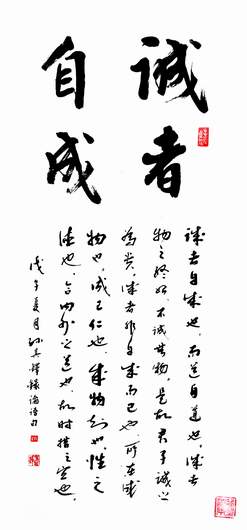 誠者
自成
誠者自成也，而道自道也，誠者
物之終始，不誠無物，是故君子誠之
為貴，誠者非自成而已也，所以成
物也，成己仁也，成物知也，性之
德也，合内外之道也，故時措之宜也。
戊子夏月